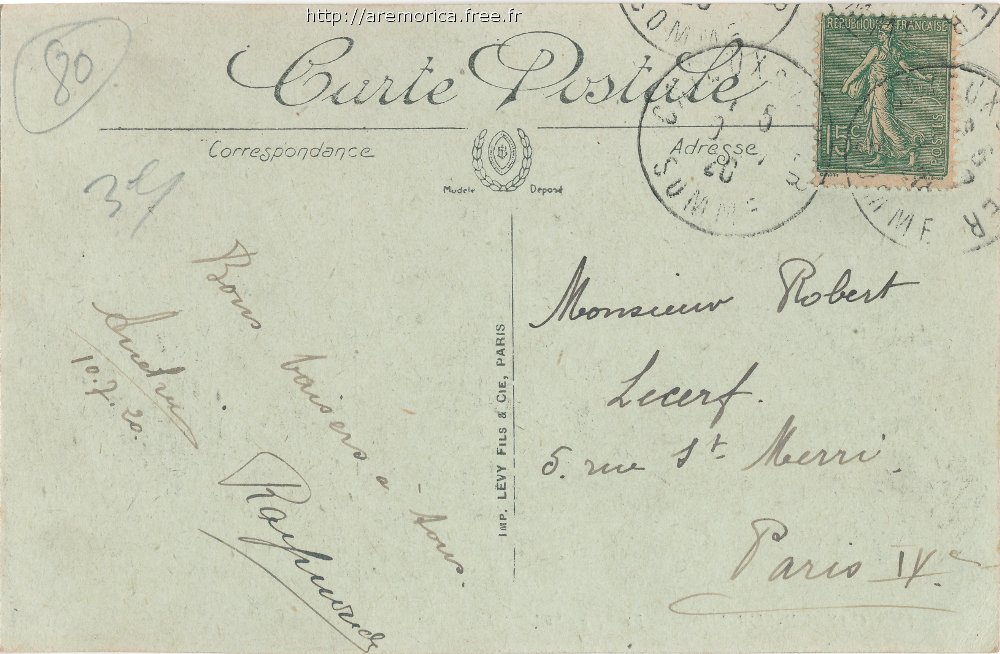 http://aremorica.free.fr
80
Carte Postale
Correspondance
Adresse
Modèle Déposé
RÉPUBLIQUE FRANÇAISE
15c
POSTES
20
SOMME
3
Bons baisers à tous.
10.7.20.
Raymonde
IMP. LÉVY FILS & CIE, PARIS
Monsieur Robert
Lecerf.
5. rue St Merri.
Paris IVe